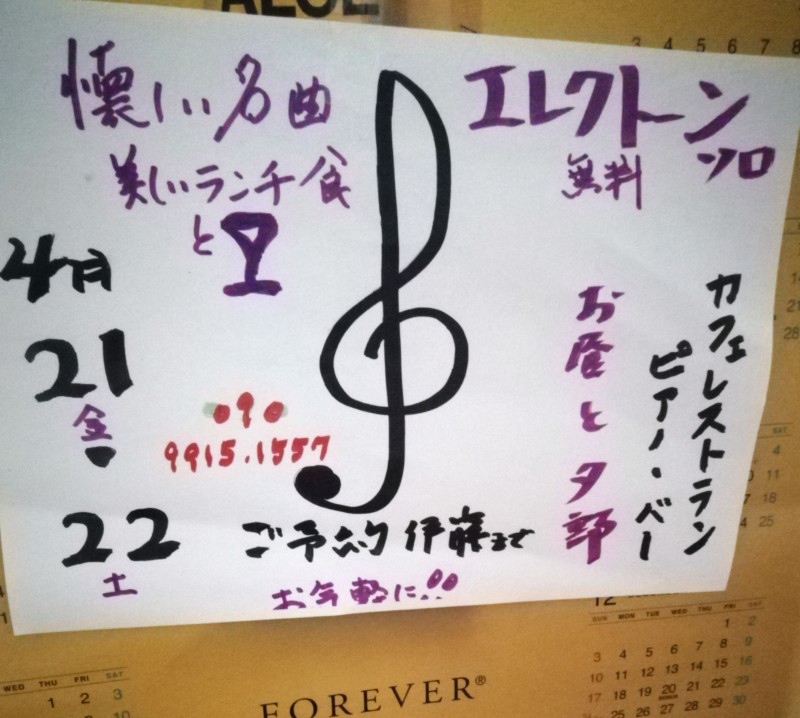 懐しい名曲
美しいランチ食
と
エレクトーン
ソロ
無料
4月
21
金
22
土
090
9915.1557
カフェレストラン
ピアノ・バー
お昼と夕部
ご予約 伊藤まで
お気軽に!!
3 4 5 6 7 8
WED THU FRI SAT
1 2 3
FOREVER®
12
SUN MON TUE WED THU FRI SAT
1 2
3 4 5 6 7 8 9
10 11 12 13 14 15 16
17 18 19 20 21 22 23
24 25 26 27 28 29 30